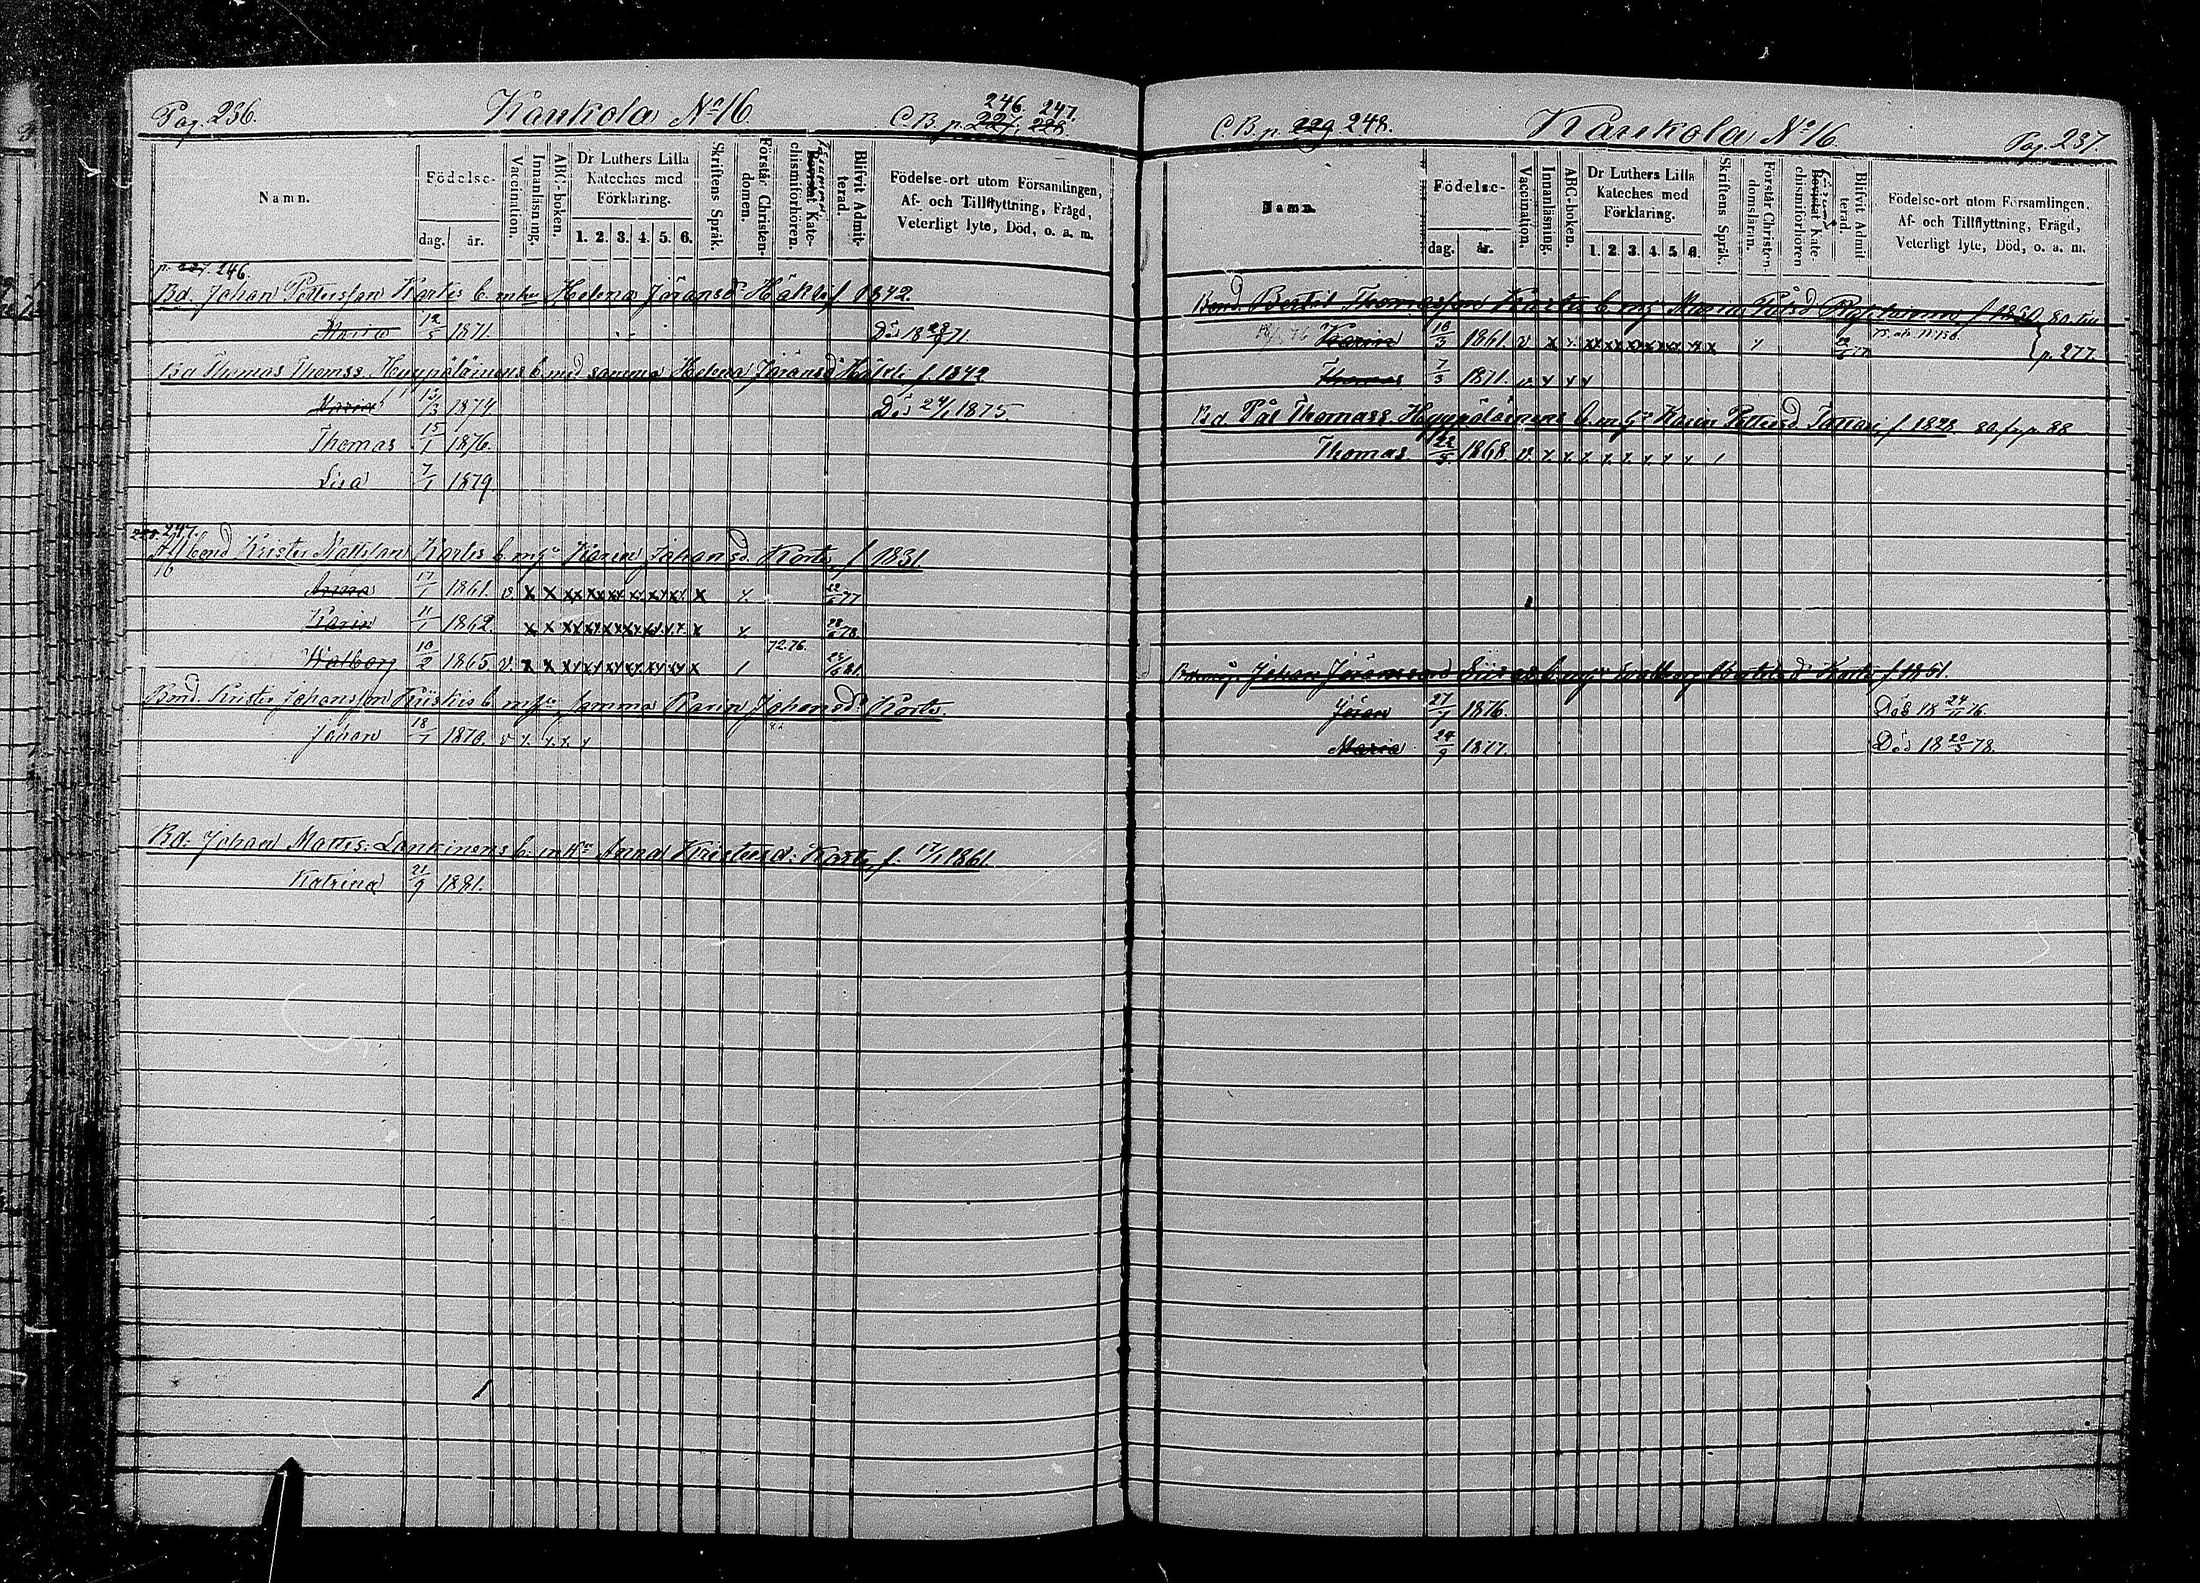 Pag. 236. Kaukola No 16. C.B. p. 227, 228. 246. 247.
Namn. Födelse- dag. år. Vaccination. Innanläsning. ABC-boken. Dr Luthers Lilla Kateches med Förklaring. 1. 2. 3. 4. 5. 6. Skriftens Språk. Förstår Christendomen. Bevistat Katechismiförhören. Blifvit Admitterad. Födelse-ort utom Församlingen, Af- och Tillflyttning, Frägd, Veterligt lyte, Död, o. a. m.
p. 227. 246.
Bd. Johan Pettersson Kortes b. m hu Helena Jöransd Häkli f 1842.
Maria 12/5 1871. Död 18 /71.
Thomas Thomss. Hyypöläinens b. med samma Helena Jöransd Häkli f. 1842
Maria 13/3 1874. Död 24/1 1875.
Thomas 15/1 1876.
Lisa 7/1 1879.
228. 247.
bond Krister Mattsson Kortes b. m Karin Johansd. Korte, f 1831
Anna 17/1 1861. v. x x 77
Karin 11/1 1862. x x 78
72. 76.
Walborg 10/2 1865. v. x x 1 81.
Bond. Krister Johansson b. m samma Karin Johansd Korte.
Johan 18/1 1870. v x. x. x. x
Bd. Johan Matts: Lankinens b. m Anna Kristersd: Korte, f. 17/1 1861.
Katrina 21/9 1881.
C.B. p. 229 248. Kaukola No 16. Pag. 237.
Namn. Födelse- dag. år. Vaccination. Innanläsning. ABC-boken. Dr Luthers Lilla Kateches med Förklaring. 1. 2. 3. 4. 5. 6. Skriftens Språk. Förstår Christendomsläran. Bevistat Katechismiförhören Blifvit Admitterad. Födelse-ort utom Församlingen, Af- och Tillflyttning, Frägd, Veterligt lyte, Död, o. a. m.
Bond. Bertil Thomasson b. m Maria Pålsd f 1830
Karin 10/3 1861. v x x. p. 277.
Thomas 7/3 1871. v. x x x
Bd. Pål Thomass. Hyypöläinens b. m Karin Pettersd Tattari f 1828 p. 88
Thomas 22/ 1868. v. x. x. x. x. x. x. x. x. 1
Johan Jöransson b. m Walborg Bertilsd Korte f 1851.
Jöran 27/1 1876. Död 18 24/11 76.
Maria 24/9 1877. Död 18 20/5 78.